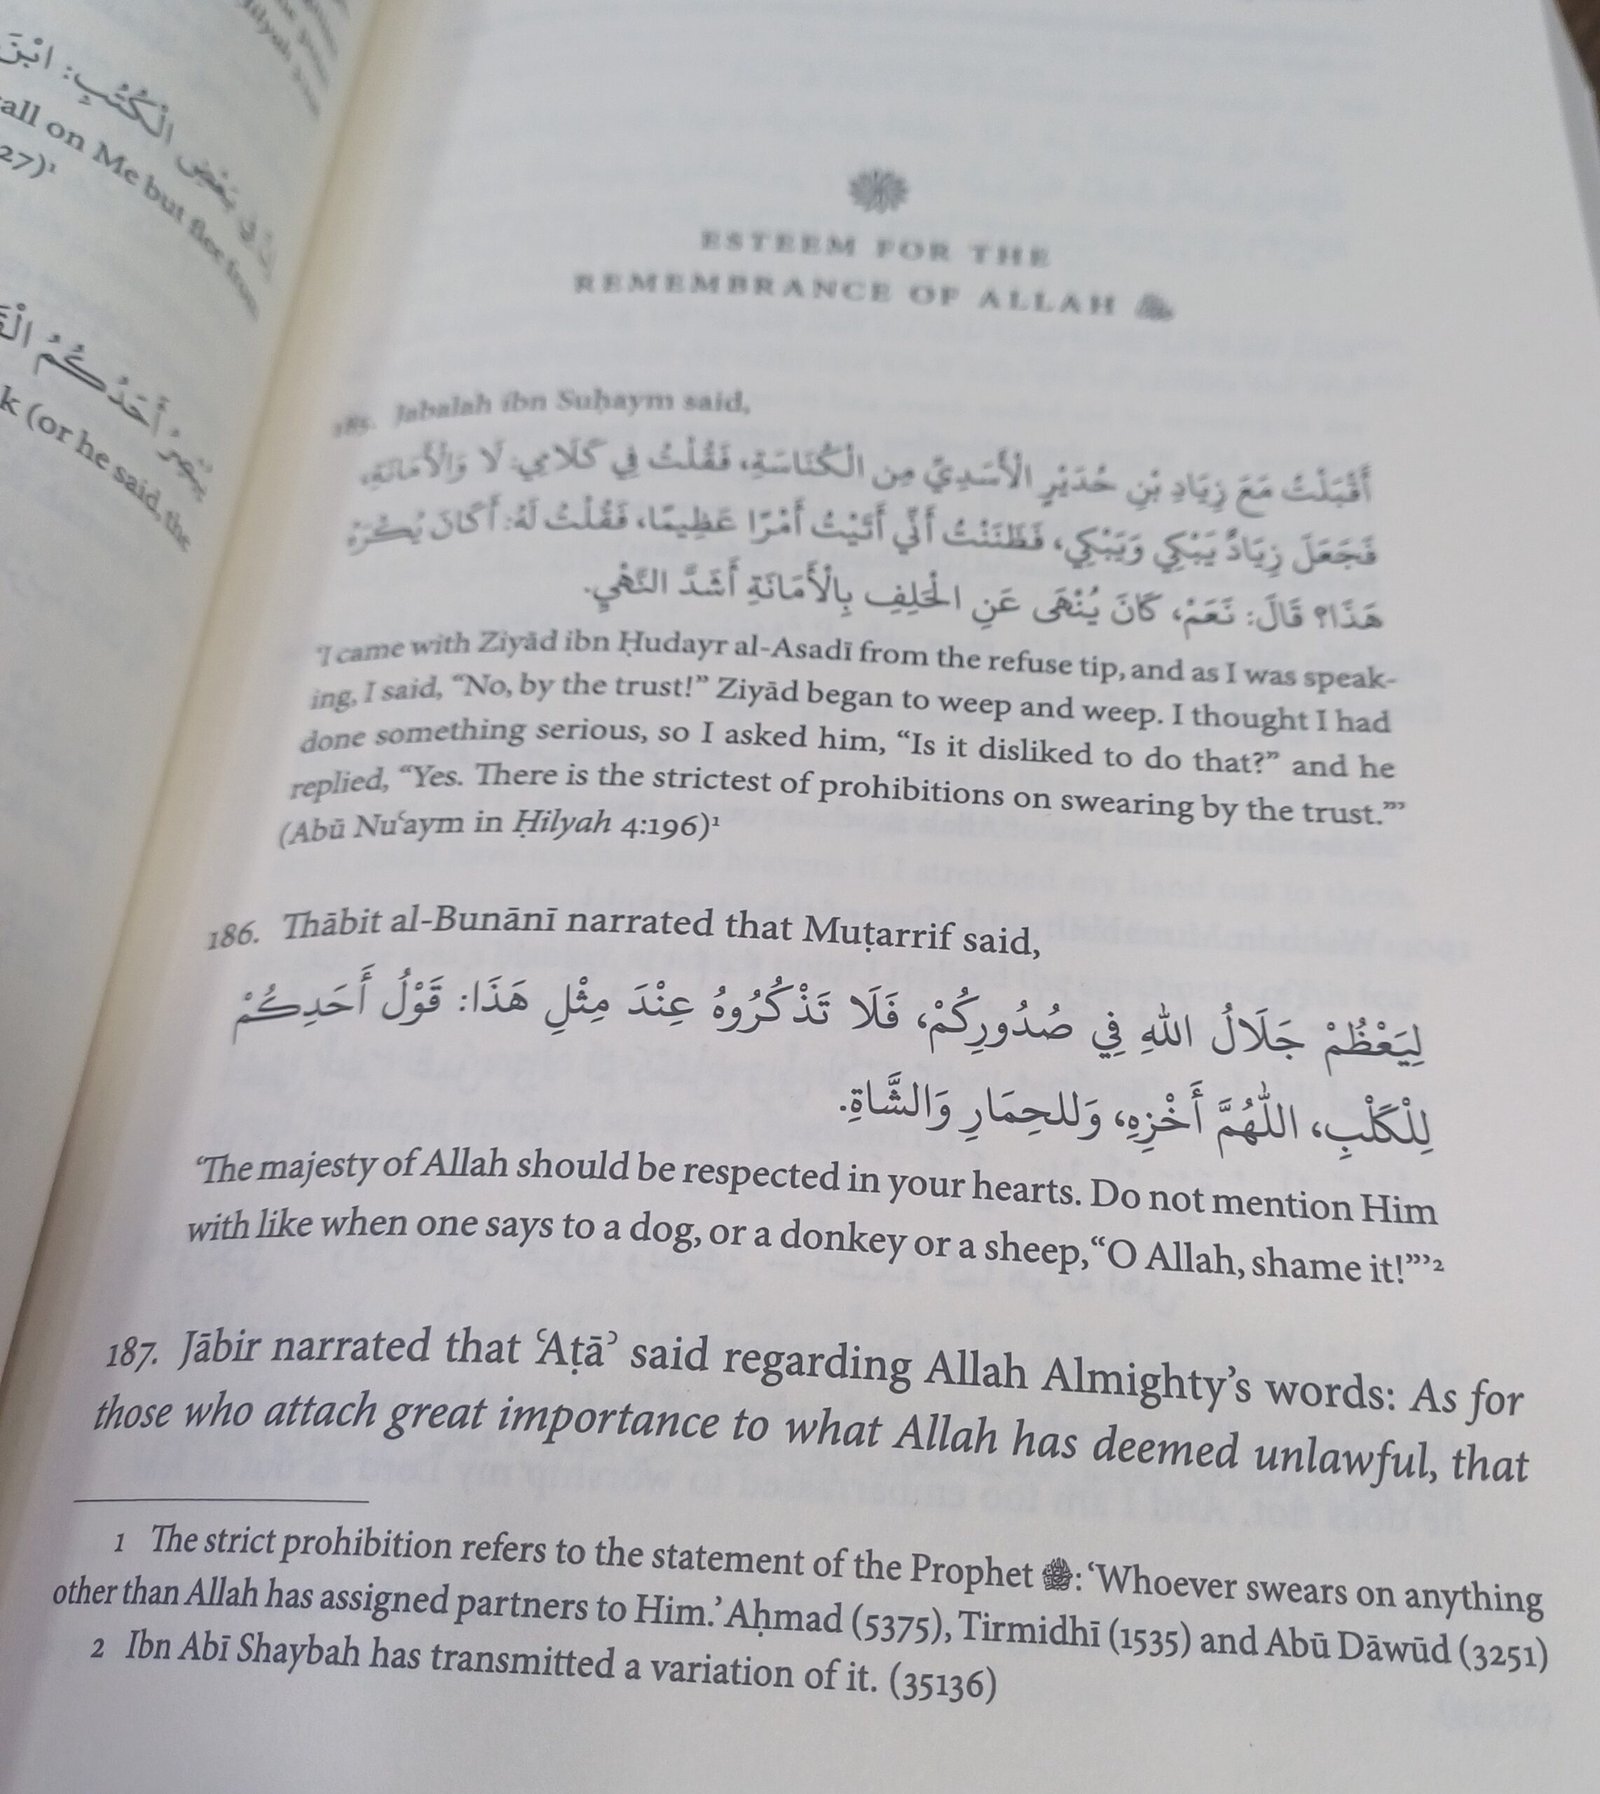 الْكُتُبِ: ابْنَ
all on Me but flee from
27)¹
أَحَدُكُمُ
k (or he said, the
ESTEEM FOR THE
REMEMBRANCE OF ALLAH
185. Jabalah ibn Suḥaym said,
أَقْبَلْتُ مَعَ زِيَادِ بْنِ حُدَيْرٍ الْأَسَدِيِّ مِن الْكُنَاسَةِ، فَقُلْتُ فِي كَلَامِي: لَا وَالْأَمَانَةِ،
فَجَعَلَ زِيَادٌ يَبْكِي وَيَبْكِي، فَظَنَنْتُ أَنِّي أَتَيْتُ أَمْرًا عَظِيمًا، فَقُلْتُ لَهُ: أَكَانَ يُكْرَهُ
هَذَا؟ قَالَ: نَعَمْ، كَانَ يُنْهَى عَنِ الْحَلِفِ بِالْأَمَانَةِ أَشَدَّ النَّهْيِ.
‘I came with Ziyād ibn Ḥudayr al-Asadī from the refuse tip, and as I was speak-
ing, I said, “No, by the trust!” Ziyād began to weep and weep. I thought I had
done something serious, so I asked him, “Is it disliked to do that?” and he
replied, “Yes. There is the strictest of prohibitions on swearing by the trust.”’
(Abū Nuʿaym in Ḥilyah 4:196)¹
186. Thābit al-Bunānī narrated that Muṭarrif said,
لِيَعْظُمْ جَلَالُ اللهِ فِي صُدُورِكُمْ، فَلَا تَذْكُرُوهُ عِنْدَ مِثْلِ هَذَا: قَوْلُ أَحَدِكُمْ
لِلْكَلْبِ، اللَّهُمَّ أَخْزِهِ، وَللحِمَارِ وَالشَّاةِ.
‘The majesty of Allah should be respected in your hearts. Do not mention Him
with like when one says to a dog, or a donkey or a sheep, “O Allah, shame it!”’²
187. Jābir narrated that ʿAṭāʾ said regarding Allah Almighty’s words: As for
those who attach great importance to what Allah has deemed unlawful, that
1 The strict prohibition refers to the statement of the Prophet ﷺ: ‘Whoever swears on anything
other than Allah has assigned partners to Him.’ Aḥmad (5375), Tirmidhī (1535) and Abū Dāwūd (3251)
2 Ibn Abī Shaybah has transmitted a variation of it. (35136)